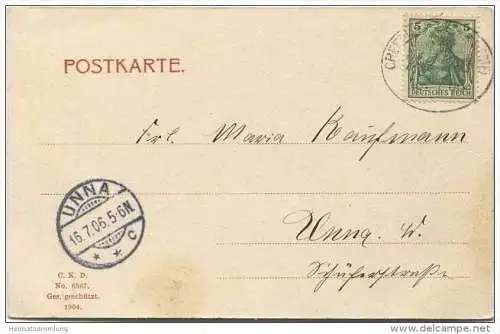 5 5
DEUTSCHES REICH
CREF
POSTKARTE.
Frl. Maria Kaufmann
UNNA
16.7.06.5-6N
* * C
Unna. W.
Schäferstraße
C. K. D.
No. 6567.
Ges. geschützt.
1904.
Heimatsammlung
www.ansichtskartenversand.com